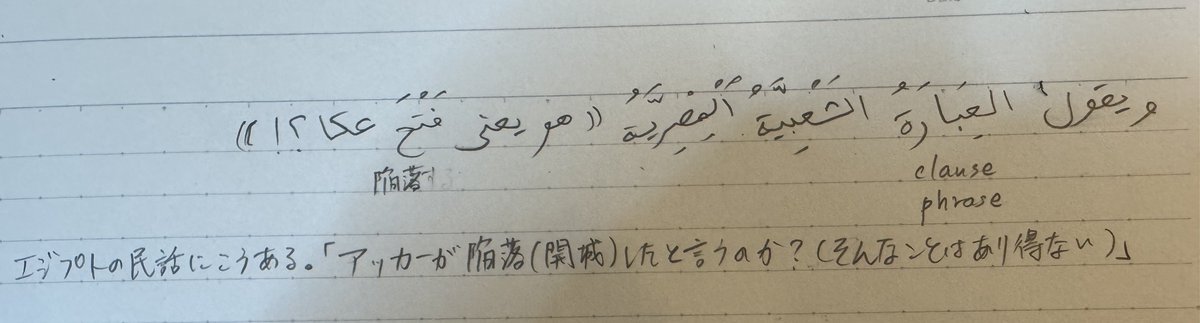 ويقول العِبَارَةُ الشَعْبِيَّةُ المِصْرِيَّةُ ((هو يعنى فَتْحُ عكا؟!))
陥落
clause
phrase
エジプトの民話にこうある。「アッカーが陥落(開城)したと言うのか？(そんなことはあり得ない)」